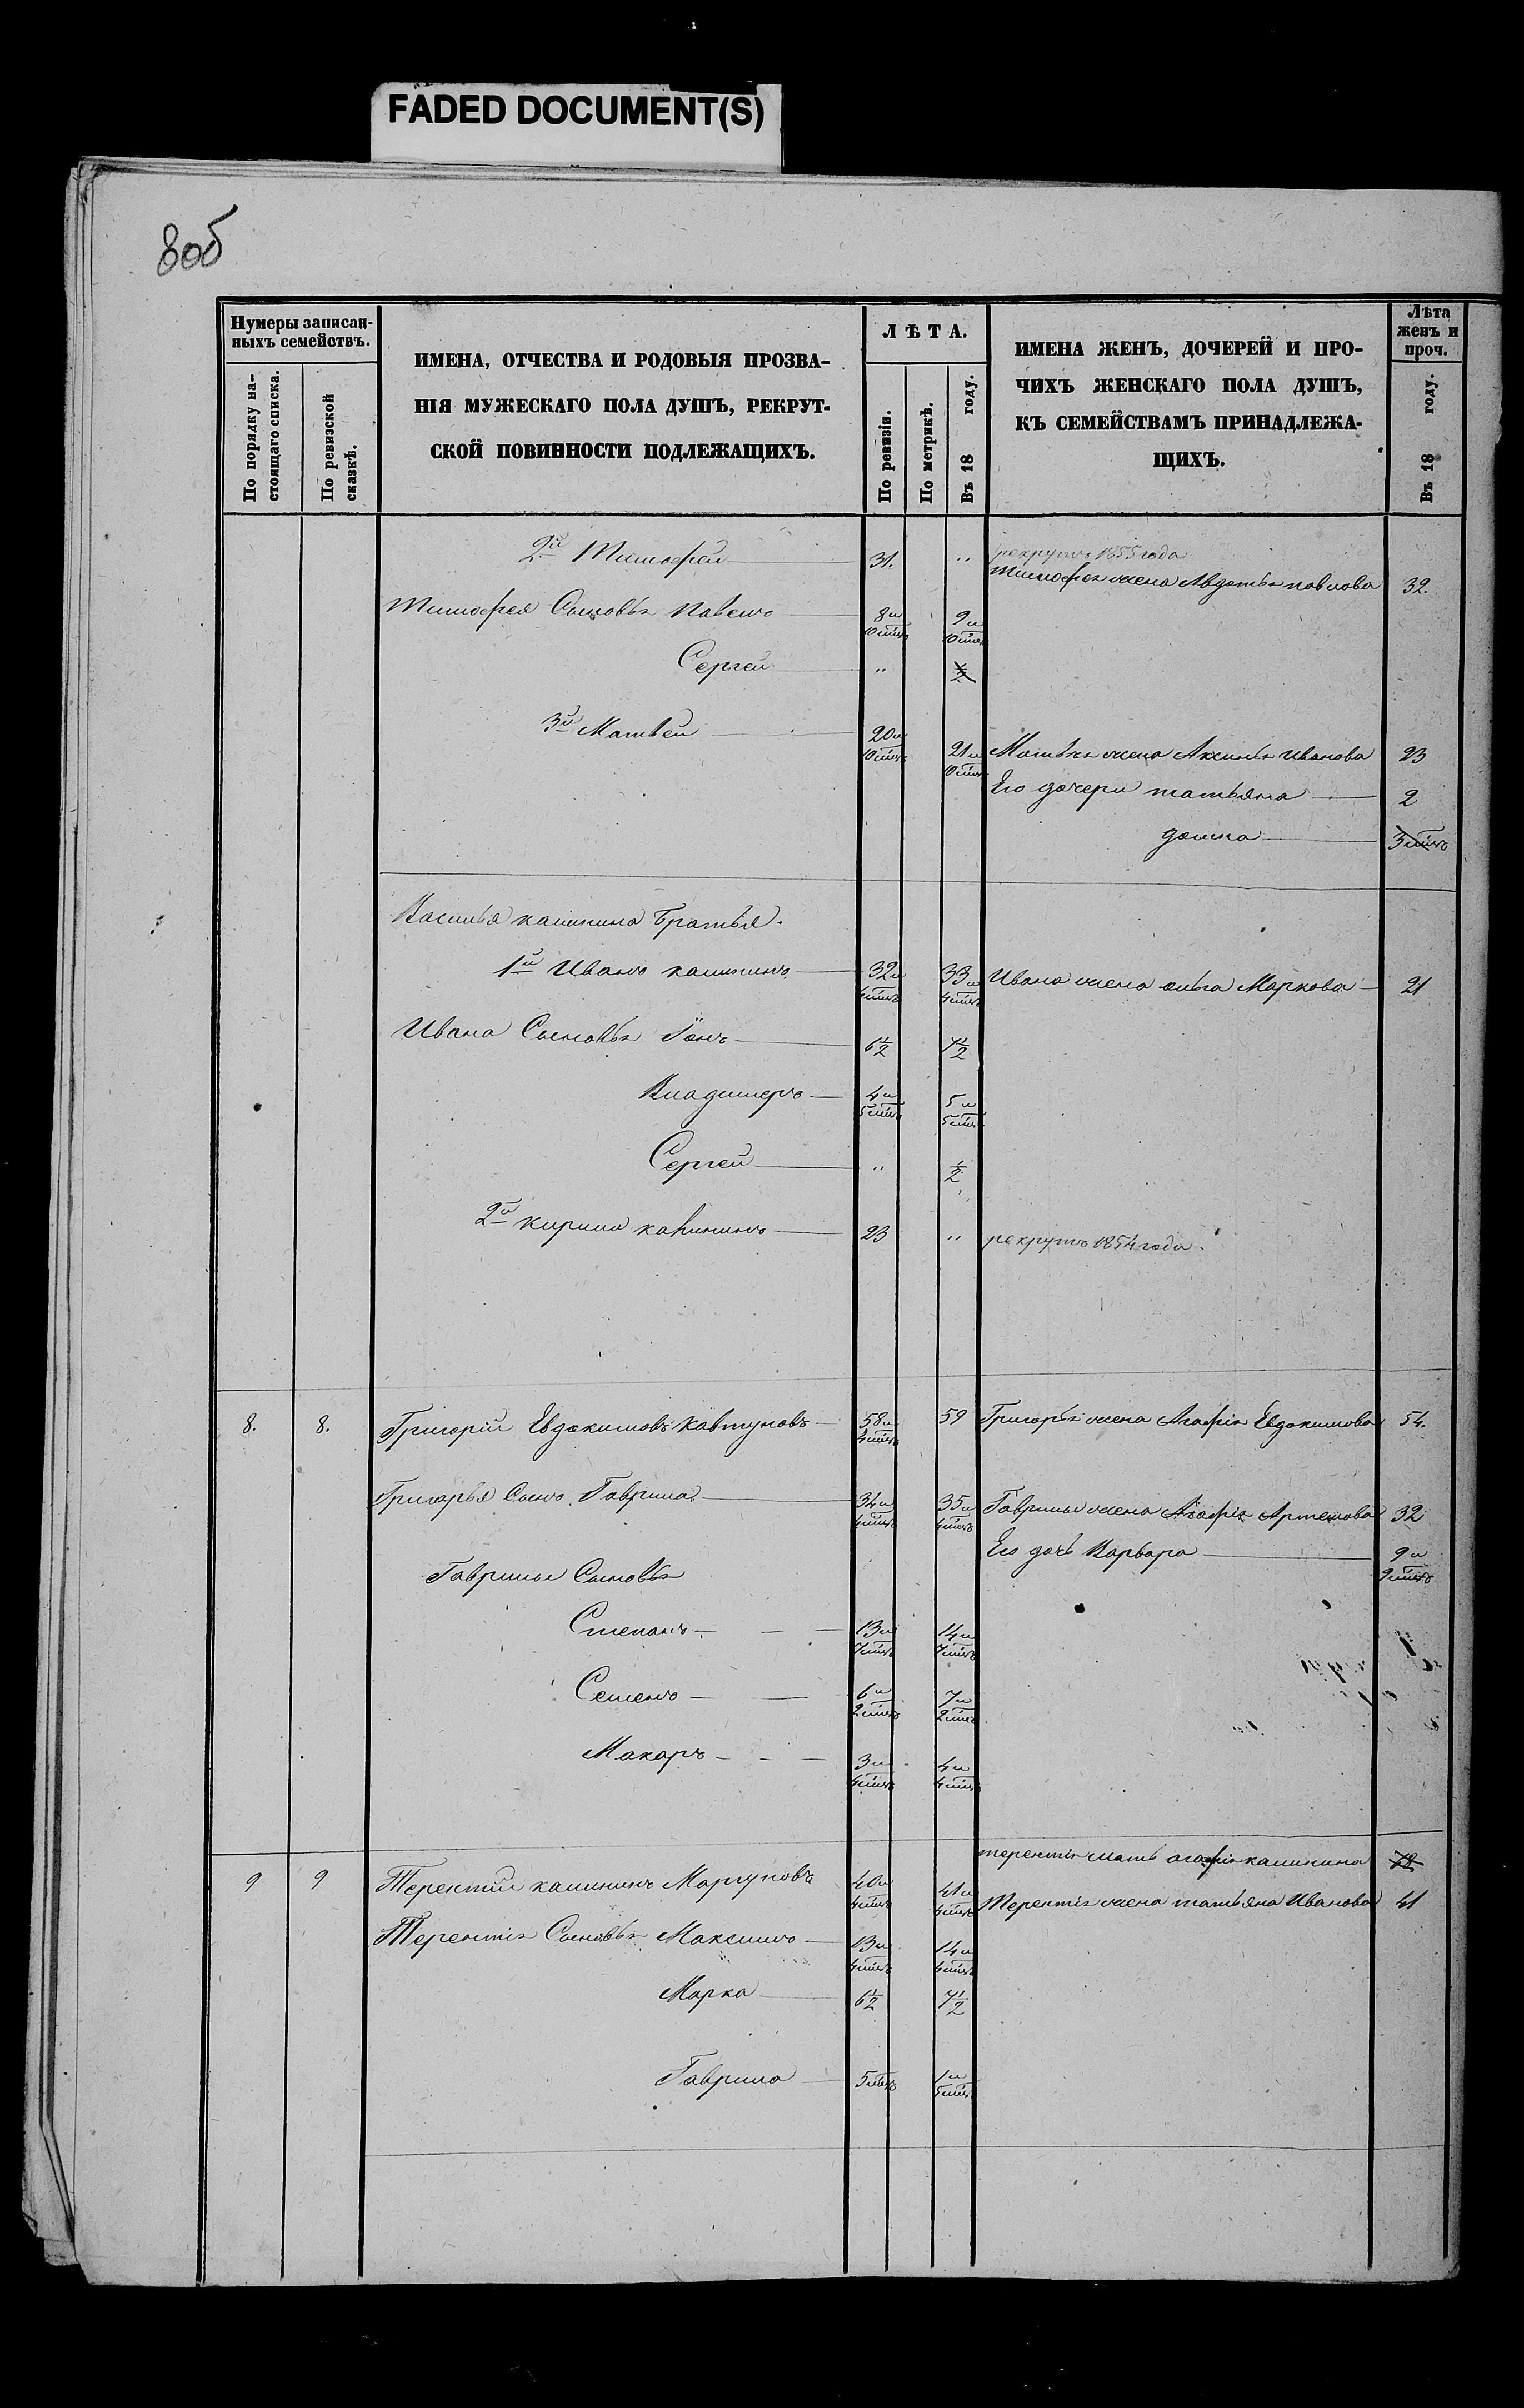 FADED DOCUMENT(S)
8об
Нумеры записан-
ныхъ семействъ.
По порядку на-
стоящаго списка.
По ревизской
сказкѣ.
ИМЕНА, ОТЧЕСТВА И РОДОВЫЯ ПРОЗВА-
НІЯ МУЖЕСКАГО ПОЛА ДУШЪ, РЕКРУТ-
СКОЙ ПОВИННОСТИ ПОДЛЕЖАЩИХЪ.
ЛѢТА.
По ревизіи.
По метрикѣ.
Въ 18 году.
ИМЕНА ЖЕНЪ, ДОЧЕРЕЙ И ПРО-
ЧИХЪ ЖЕНСКАГО ПОЛА ДУШЪ,
КЪ СЕМЕЙСТВАМЪ ПРИНАДЛЕЖА-
ЩИХЪ.
Лѣта
женъ и
проч.
Въ 18 году.
2й Тимофей 31. " рекрутъ 1855 года
Тимофея жена Авдотья павлова 32.
Тимофея Сыновья Павелъ 8 и 10 мцъ 9 и 10 мцъ
Сергей " 1/2
3й Матвей 20 и 10 мцъ 21 и 10 мцъ Матвея жена Аксинья Иванова 23
Его дочери татьяна 2
домна 3 мцъ
Василья калинина Братья.
1й Иванъ калининъ 32 и 4 мцъ 33 и 4 мцъ Ивана жена ольга Маркова 21
Ивана Сыновья Іонъ 6 1/2 7 1/2
Владимеръ 4 и 5 мцъ 5 и 5 мцъ
Сергей " 1/2
2й кирила калининъ 23 " рекрутъ 1854 года.
8. 8. Григорій Евдокимовъ Кавтуновъ 58 и 4 мцъ 59 Григорья жена Агафія Евдокимова 54.
Григорья Сынъ Гаврила 34 и 4 мцъ 35 и 4 мцъ Гаврилы жена Агафія Артемова 32
Его дочь Варвара 9 и 9 мцъ
Гаврилы Сыновья
Степанъ 13 и 7 мцъ 14 и 7 мцъ
Семенъ 6 и 2 мцъ 7 и 2 мцъ
Макаръ 3 и 4 мцъ 4 и 4 мцъ
терентія мать агафія калинина 72
9 9 Терентий калининъ Моргуновъ 40 и 4 мцъ 41 и 4 мцъ Терентія жена татьяна Иванова 41
Терентія Сыновья Максимъ 13 и 4 мцъ 14 и 4 мцъ
Марка 6 1/2 7 1/2
Гаврила 5 мцъ 1 и 5 мцъ